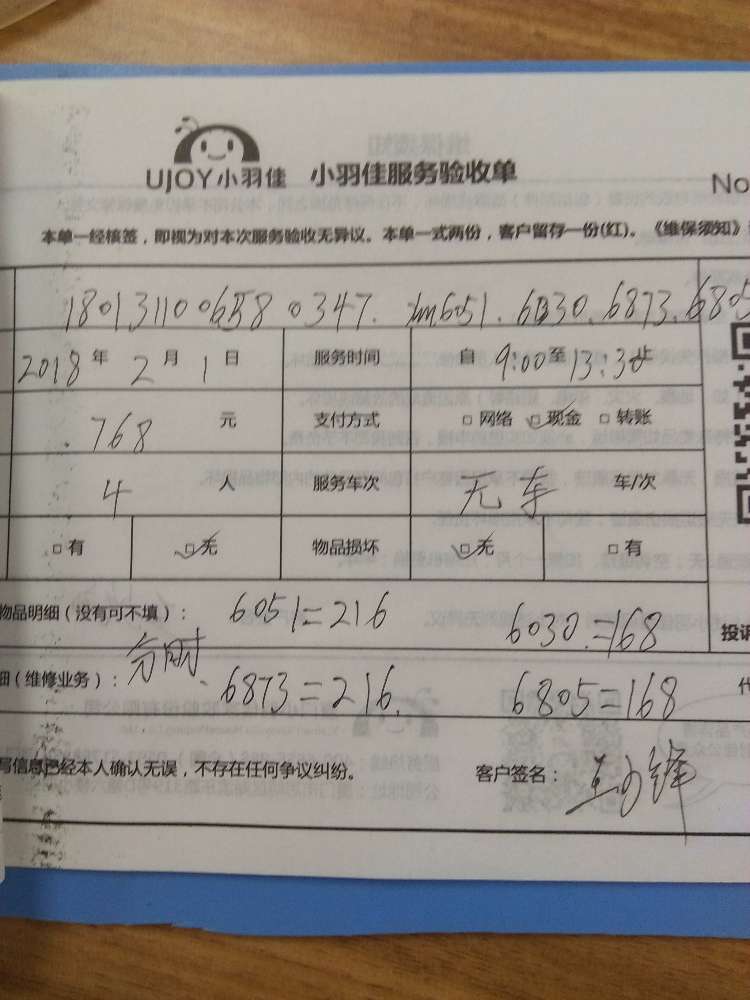 UJOY小羽佳 小羽佳服务验收单
No
本单一经核签，即视为对本次服务验收无异议。本单一式两份，客户留存一份(红)。《维保须知》
1801311006580347. 6051. 6030. 6873. 6805
2018年2月1日 服务时间 自9:00至13:30止
768元 支付方式 □网络 □现金 □转账
4人 服务车次 无车 车/次
□有 □无 物品损坏 □无 □有
物品明细（没有可不填）： 6051=216 6030=168
投诉
分时
细（维修业务）： 6873=216. 6805=168
写信息已经本人确认无误，不存在任何争议纠纷。 客户签名：